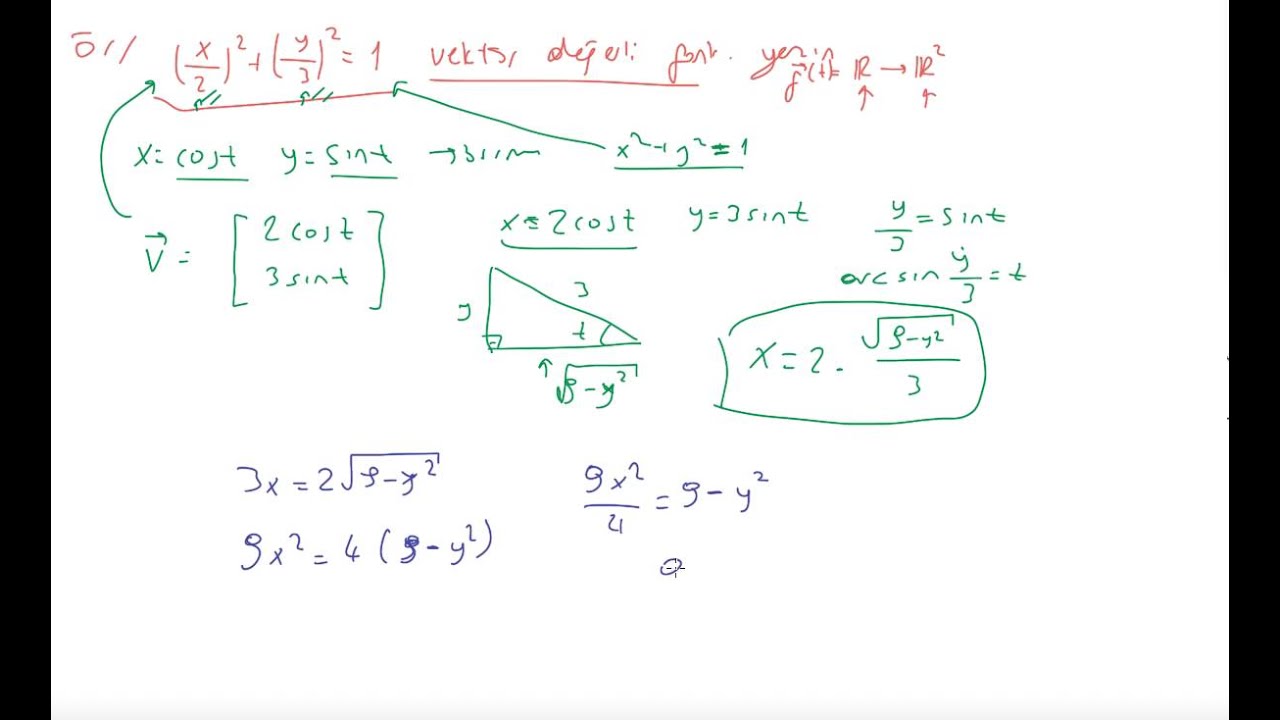 ör// (x/2)² + (y/3)² = 1 vektör değerli fonk. f⃗(t)= ℝ → ℝ²
x = cost y = sint → birim x² + y² = 1
V⃗ = [2cost
3sint]
x = 2cost y = 3sint y/3 = sint
arcsin y/3 = t
y 3 t √9-y²
x = 2 · √9-y² / 3
3x = 2√9-y²
9x²/4 = 9 - y²
9x² = 4(9 - y²)